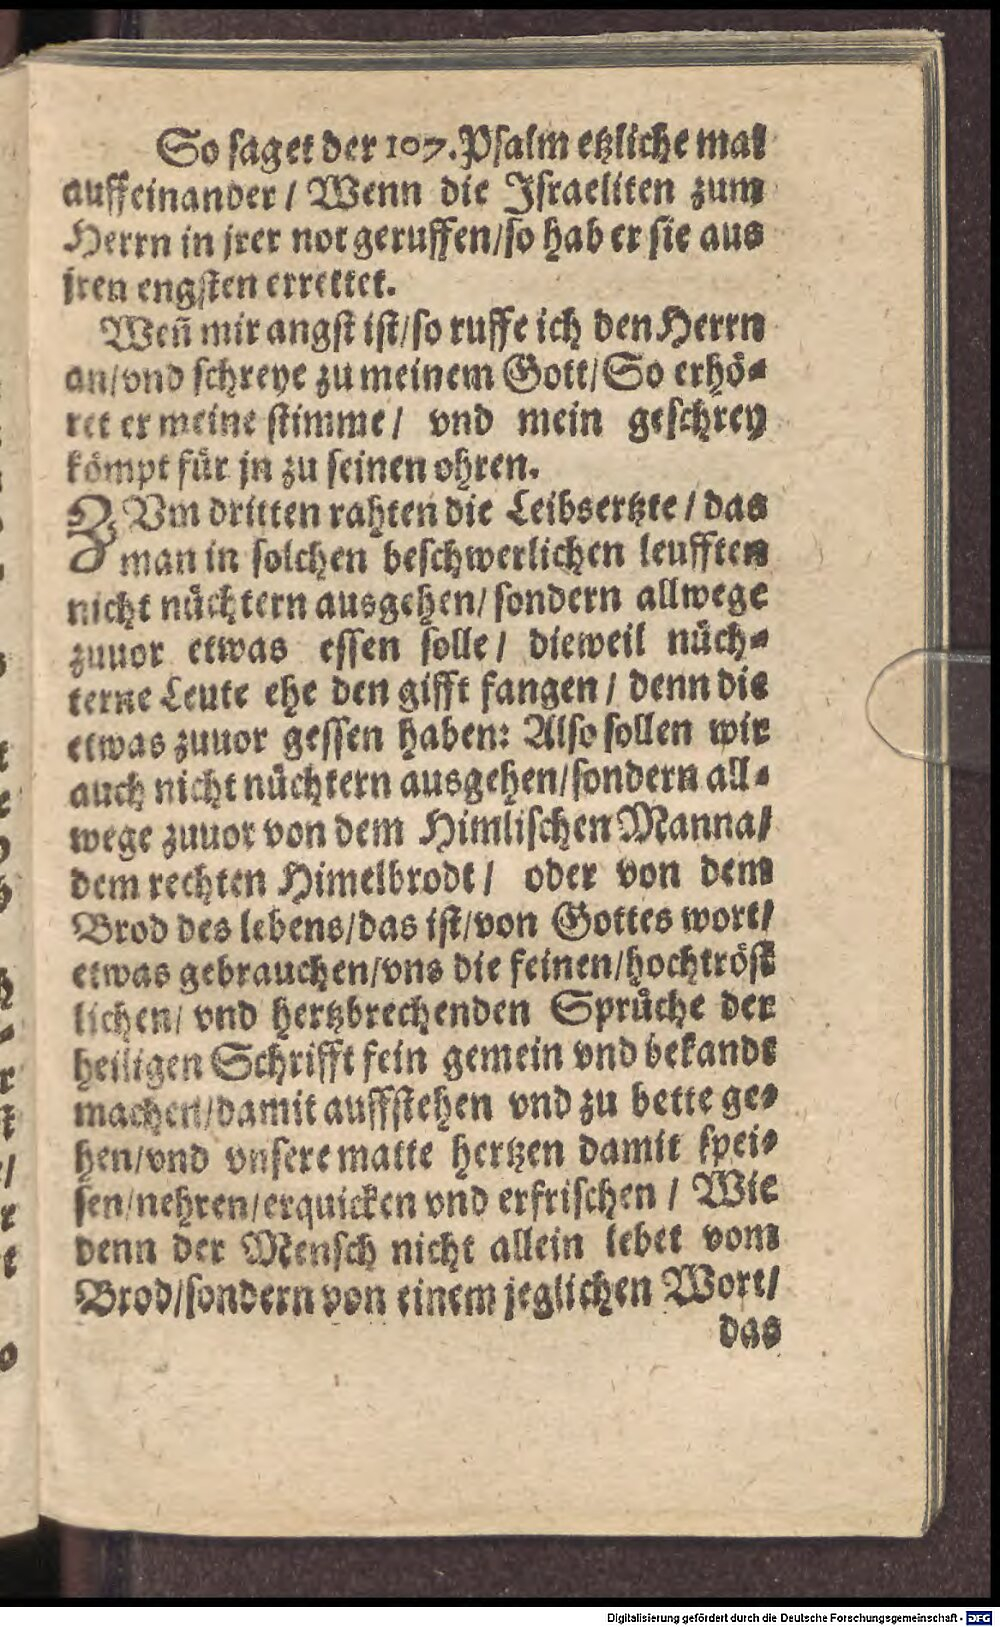 So saget der 107. Psalm etzliche mal
auffeinander / Wenn die Israeliten zum
Herrn in jrer not geruffen/so hab er sie aus
jren engsten errettet.
Weñ mir angst ist/so ruffe ich den Herrn
an/vnd schreye zu meinem Gott/So erhö-
ret er meine stimme / vnd mein geschrey
kömpt für jn zu seinen ohren.
ZVm dritten rahten die Leibsertzte / das
man in solchen beschwerlichen leufften
nicht nüchtern ausgehen/ sondern allwege
zuuor etwas essen solle / dieweil nüch-
terne Leute ehe den gifft fangen / denn die
etwas zuuor gessen haben: Also sollen wir
auch nicht nüchtern ausgehen/sondern all-
wege zuuor von dem Himlischen Manna/
dem rechten Himelbrodt / oder von dem
Brod des lebens/das ist/von Gottes wort/
etwas gebrauchen/vns die feinen/hochtröst
lichen/ vnd hertzbrechenden Sprüche der
heiligen Schrifft fein gemein vnd bekandt
machen/damit auffstehen vnd zu bette ge-
hen/vnd vnsere matte hertzen damit spei-
sen/nehren/erquicken vnd erfrischen / Wie
denn der Mensch nicht allein lebet vom
Brod/sondern von einem jeglichen Wort/
das
Digitalisierung gefördert durch die Deutsche Forschungsgemeinschaft - DFG